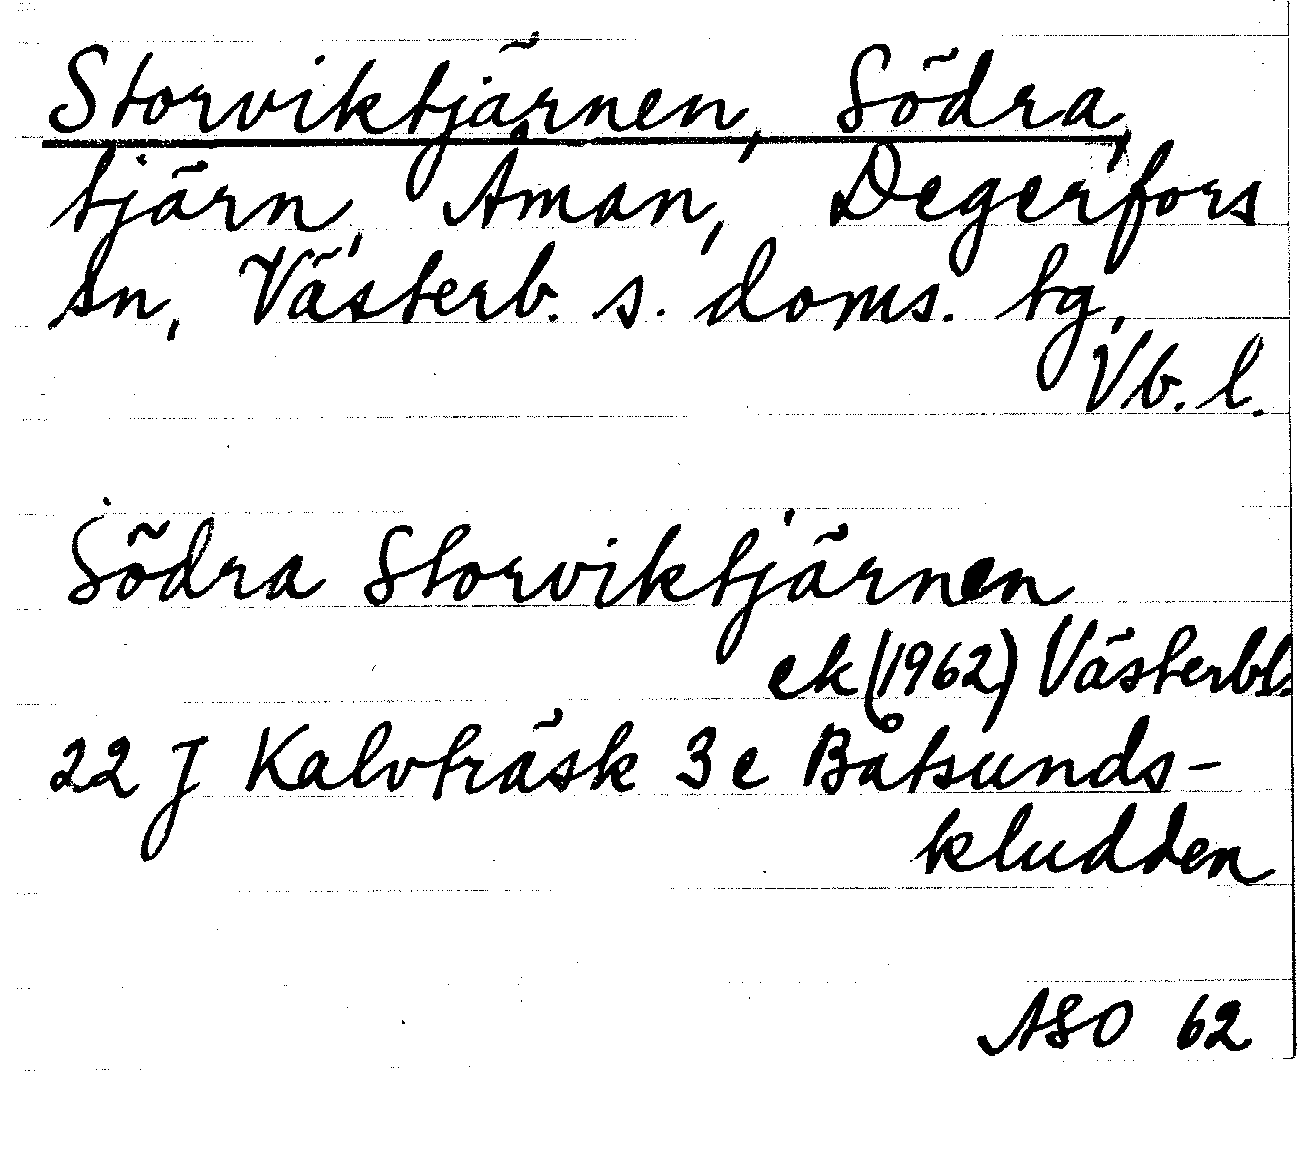 Storviktjärnen, Södra,
tjärn, Åman, Degerfors
sn, Västerb. s. doms. tg,
Vb. l.
Södra Storviktjärnen
ek (1962) Västerbl.
22 J Kalvträsk 3 e Båtsunds-
kludden
ASO 62